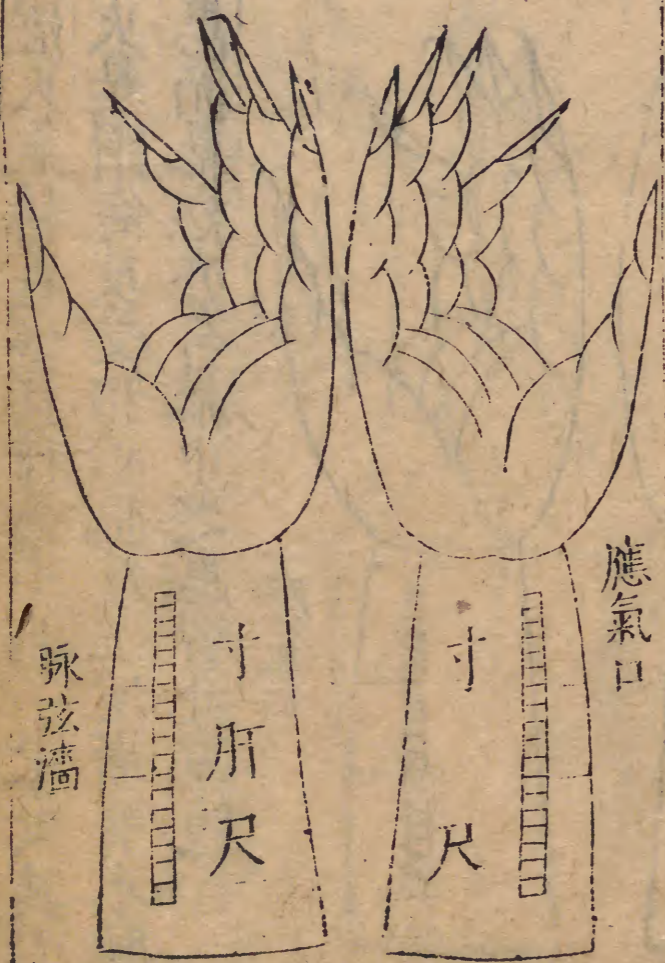 應氣口
寸
尺
寸
肝
尺
脉弦濇